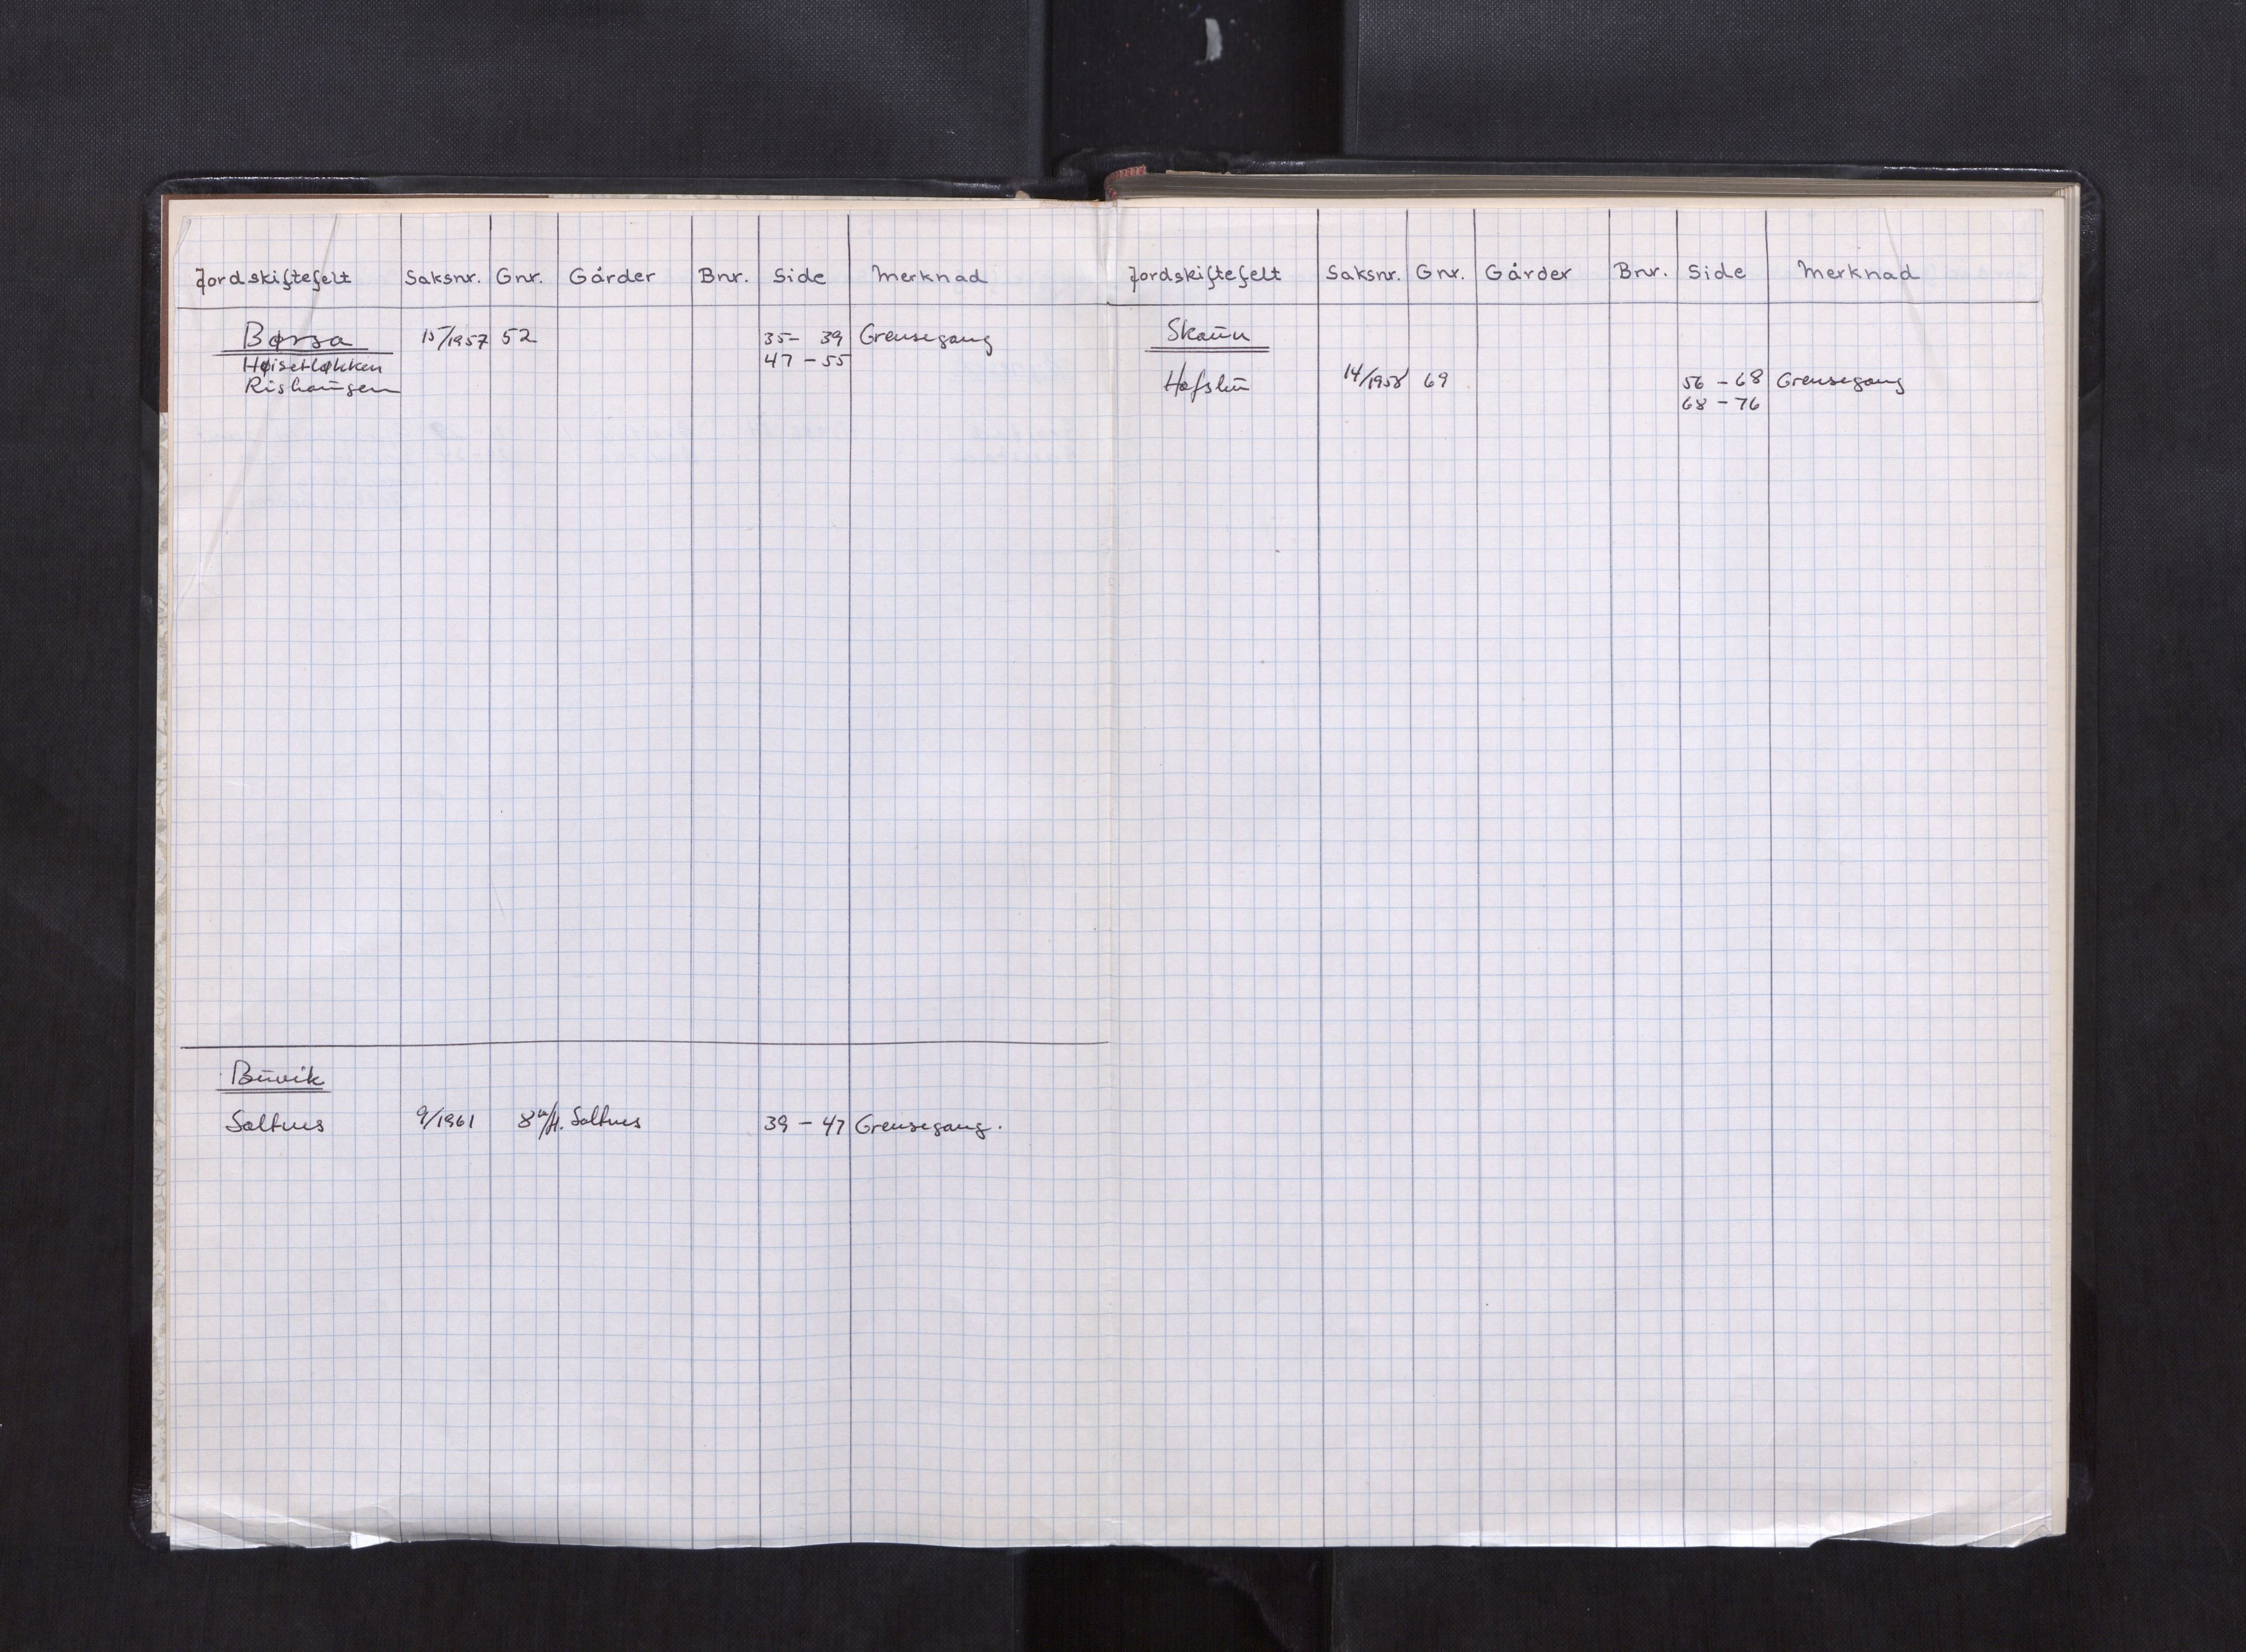 Jordskiftefelt Saksnr. Gnr. Gårder Bnr. Side Merknad
Børsa 15/1957 52 35- 39 Grensegang
Høisetløkken 47 - 55
Rishaugen
Buvik
Saltnes 9/1961 8 Saltnes 39 - 47 Grensegang.
Jordskiftefelt Saksnr. Gnr. Gårder Bnr. Side Merknad
Skaun
Hofslin 14/1958 69 56 - 68 Grensegang
68 - 76